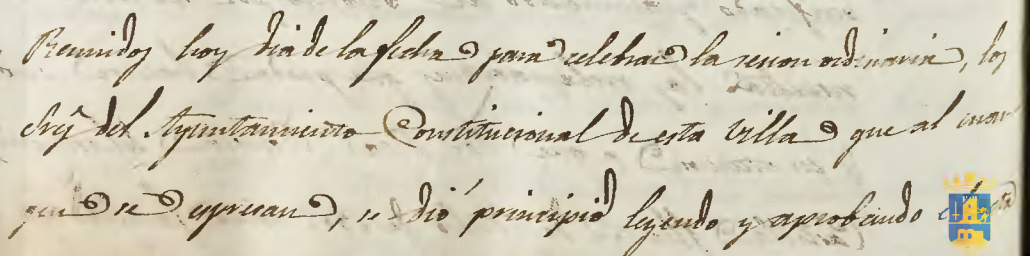 Reunidos hoy dia de la fecha para celebrar la sesion ordinaria, los
Sres del Ayuntamiento Constitucional de esta villa que al mar
gen se espresan, se dió principio leyendo y aprobando el